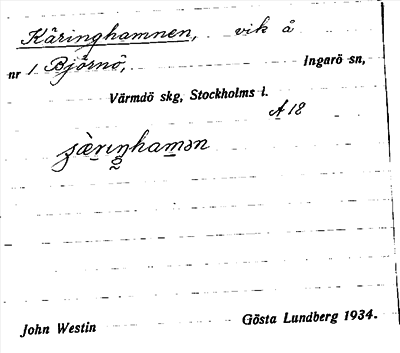 Käringhamnen, vik å
nr 1 Björnö, Ingarö sn,
Värmdö skg, Stockholms l.
A 18
John Westin Gösta Lundberg 1934.